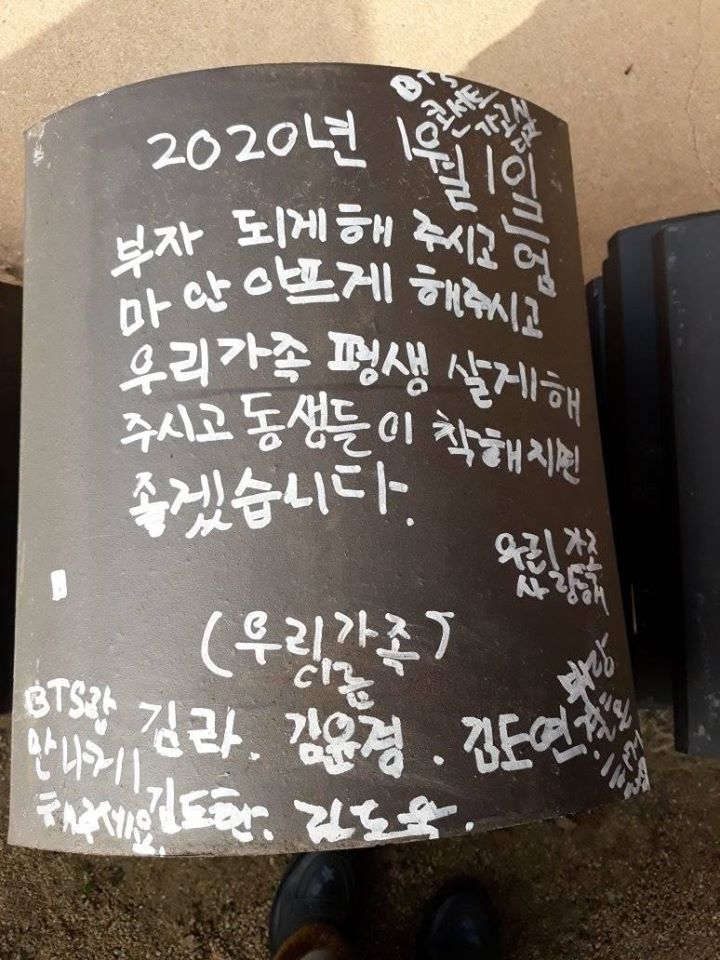 BTS
콘서트
가고싶
2020년 1월 1일
부자 되게해 주시고 엄
마 안 아프게 해주시고
우리가족 평생 살게해
주시고 동생들이 착해지면
좋겠습니다.
우리 가족
사랑해
(우리가족)
이름
BTS랑
만나게
해주세요
김라. 김윤경. 김도연.
김도현. 김도욱.